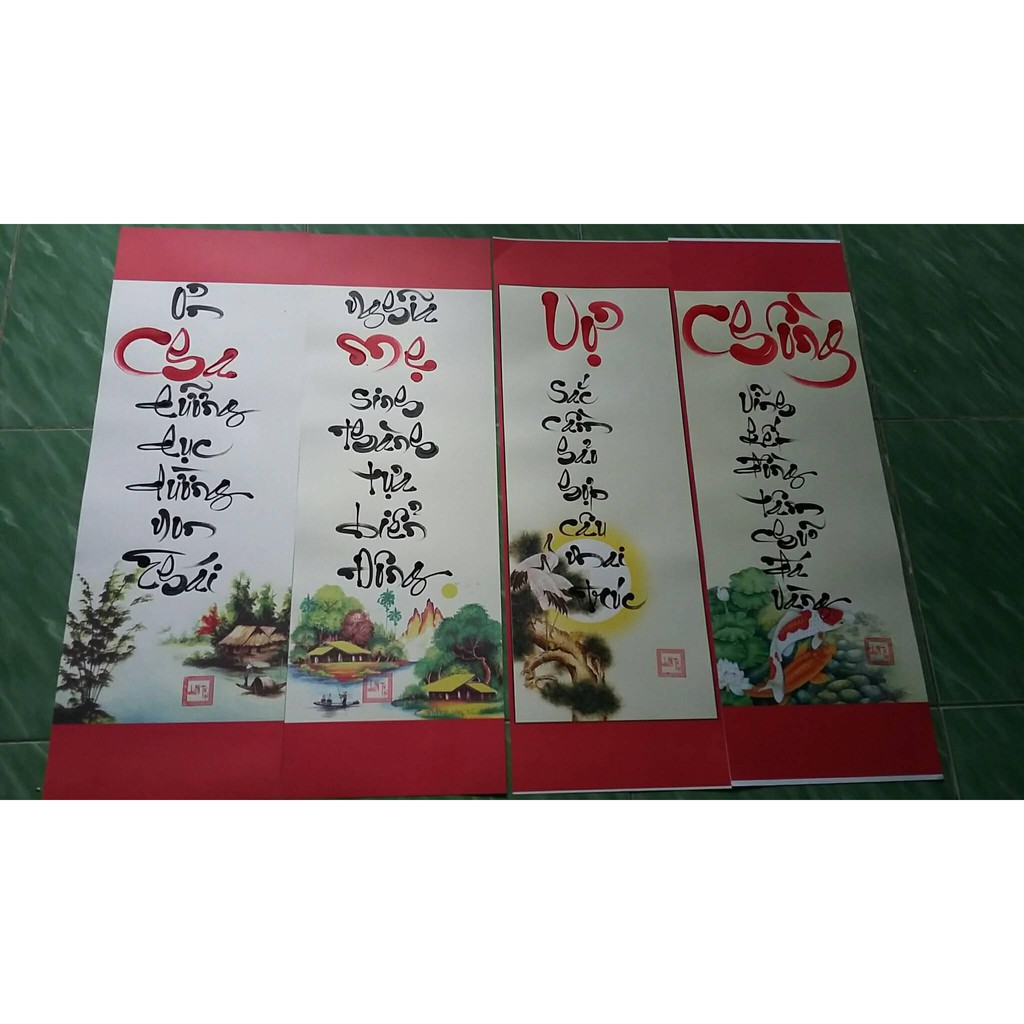 Ơn
Cha
dưỡng
dục
dường
non
Thái
Nghĩa
Mẹ
sinh
thành
tựa
biển
Đông
Vợ
Sắc
cầm
hảo
hợp
câu
mai
trúc
Chồng
Vĩnh
kết
đồng
tâm
chữ
đá
vàng